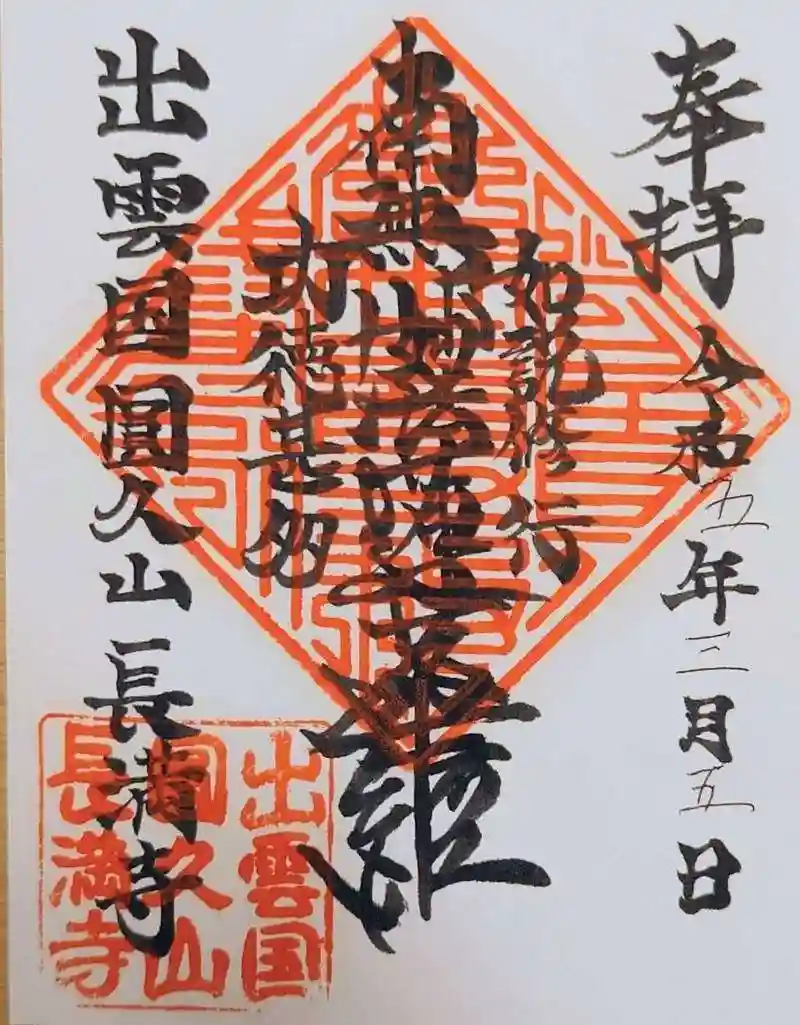 奉拝
令和五年三月五日
如説修行
南無妙法蓮華経
功徳甚多
出雲国圓久山長満寺
出雲国
圓久山
長満寺